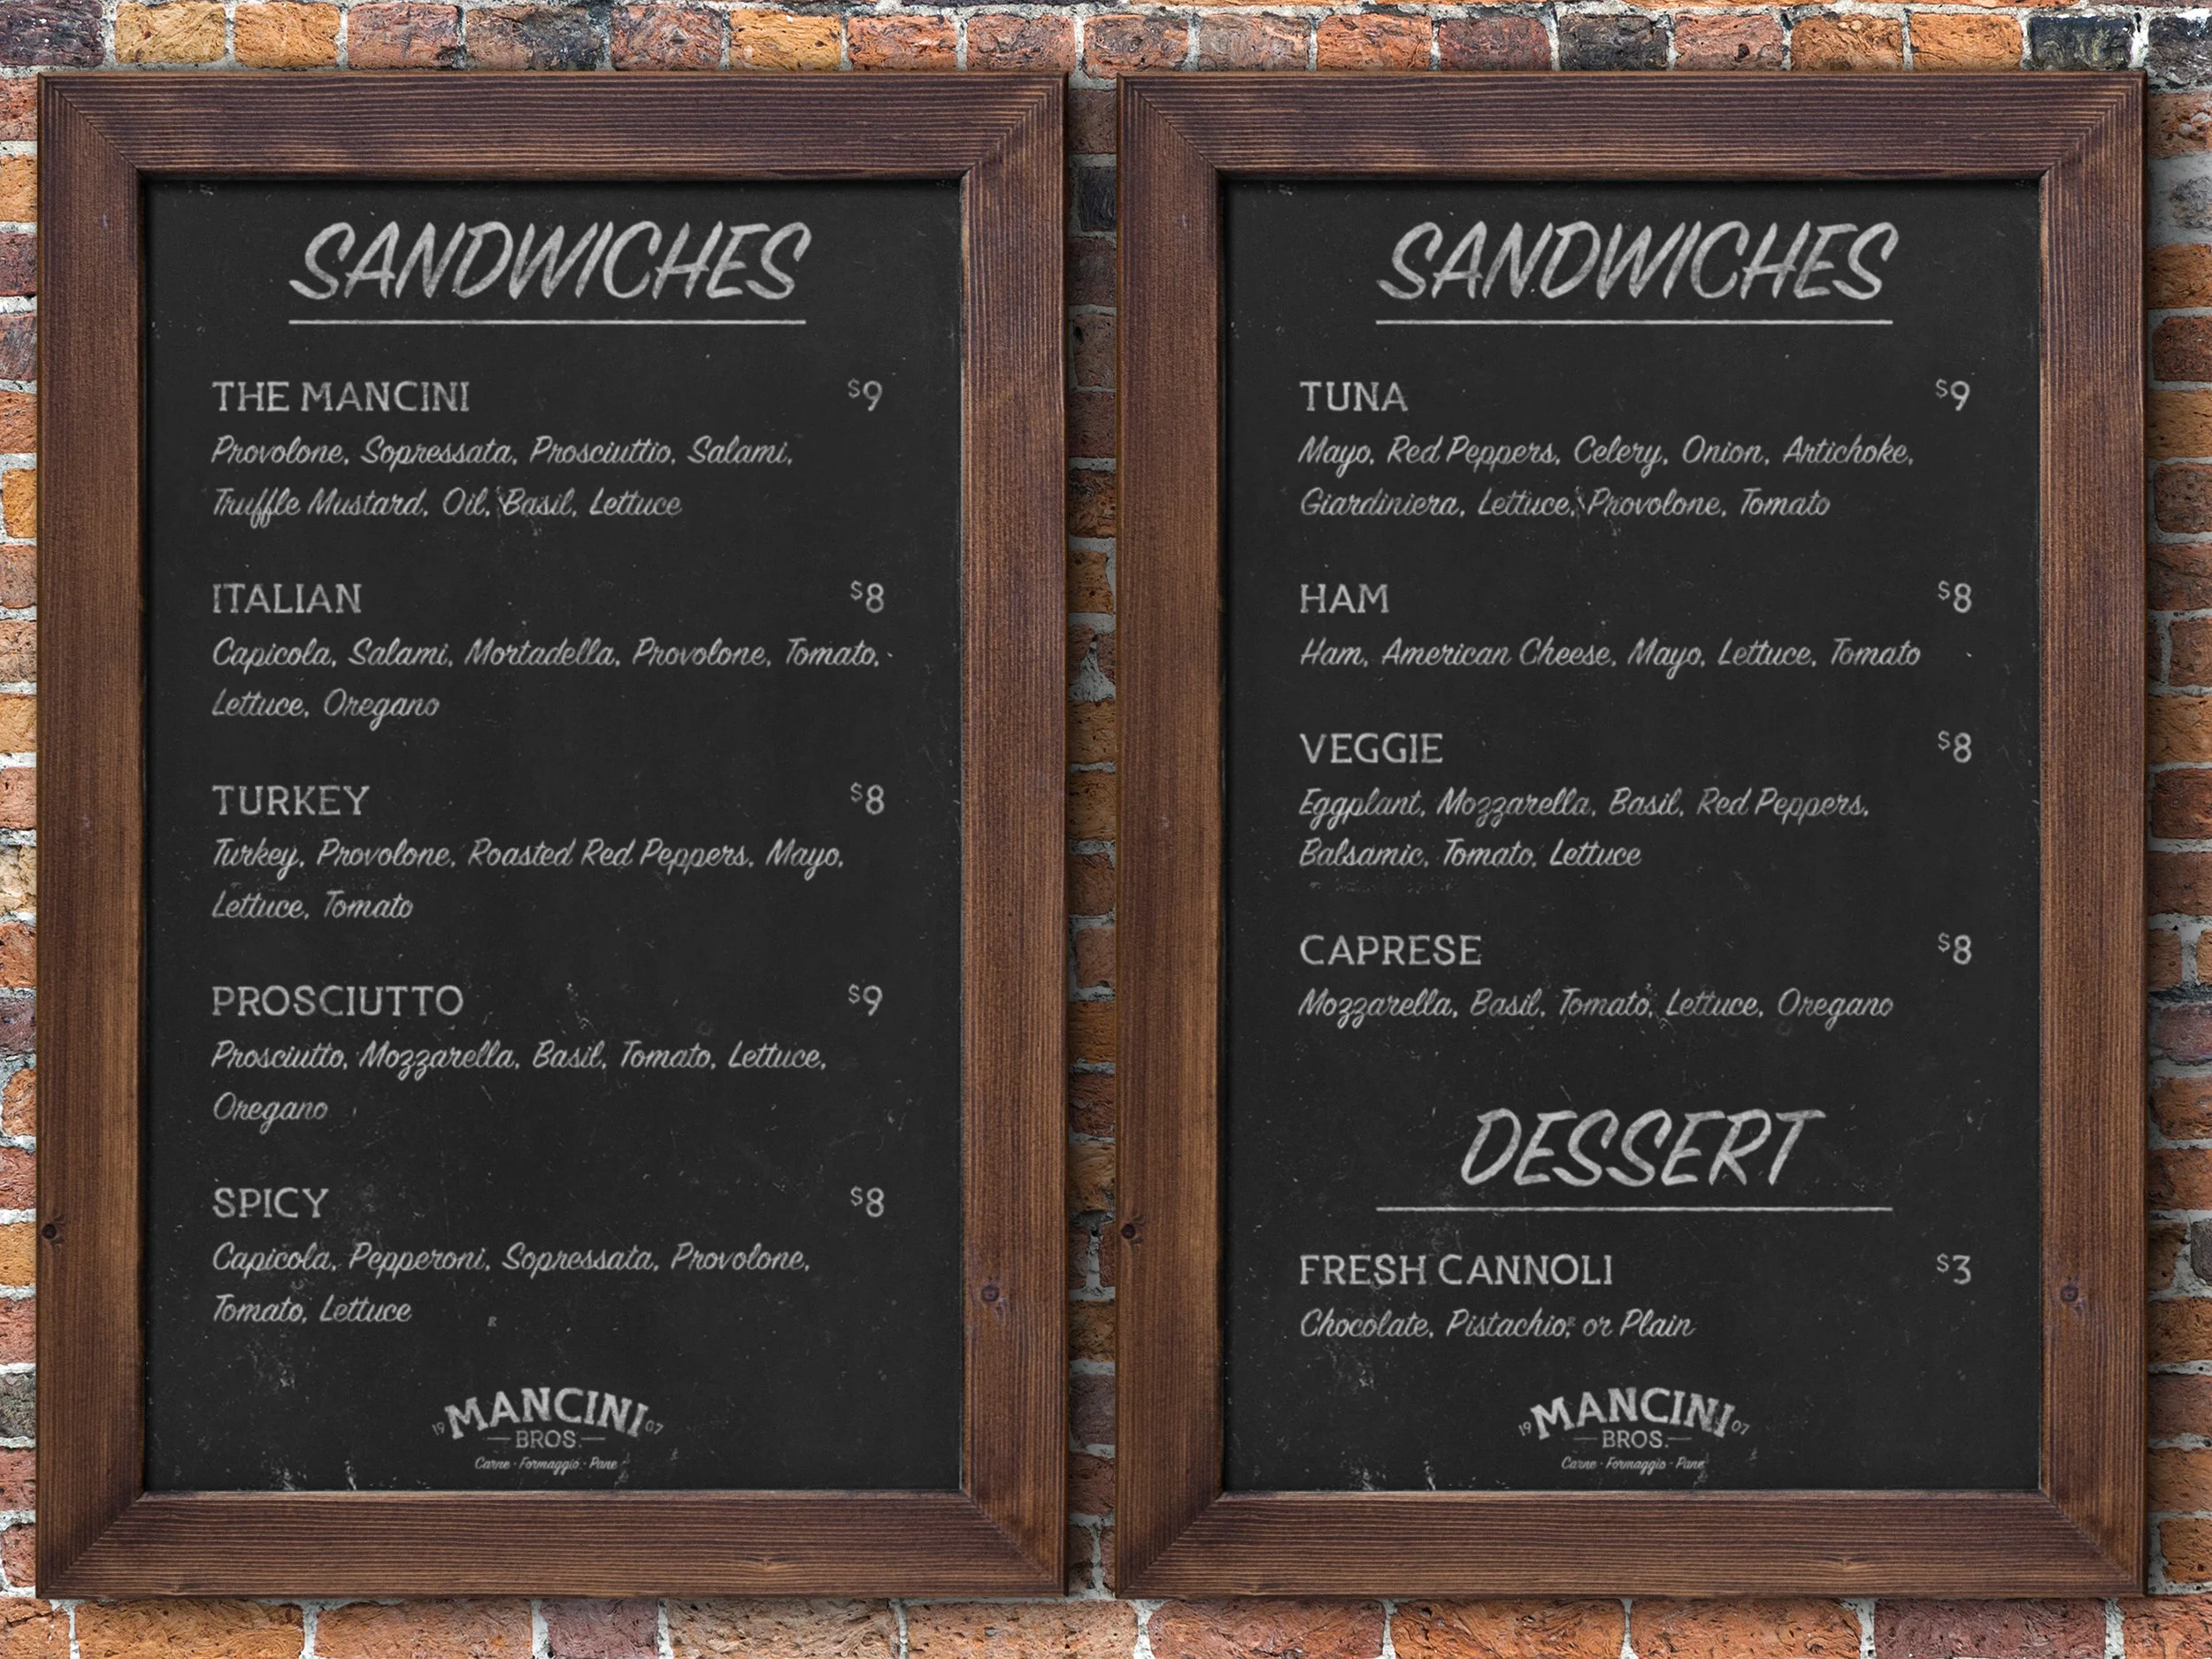 SANDWICHES
THE MANCINI $9
Provolone, Sopressata, Prosciuttio, Salami,
Truffle Mustard, Oil, Basil, Lettuce
ITALIAN $8
Capicola, Salami, Mortadella, Provolone, Tomato,
Lettuce, Oregano
TURKEY $8
Turkey, Provolone, Roasted Red Peppers, Mayo,
Lettuce, Tomato
PROSCIUTTO $9
Prosciutto, Mozzarella, Basil, Tomato, Lettuce,
Oregano
SPICY $8
Capicola, Pepperoni, Sopressata, Provolone,
Tomato, Lettuce
19 MANCINI 07
BROS.
Carne · Formaggio · Pane
SANDWICHES
TUNA $9
Mayo, Red Peppers, Celery, Onion, Artichoke,
Giardiniera, Lettuce, Provolone, Tomato
HAM $8
Ham, American Cheese, Mayo, Lettuce, Tomato
VEGGIE $8
Eggplant, Mozzarella, Basil, Red Peppers,
Balsamic, Tomato, Lettuce
CAPRESE $8
Mozzarella, Basil, Tomato, Lettuce, Oregano
DESSERT
FRESH CANNOLI $3
Chocolate, Pistachio, or Plain
19 MANCINI 07
BROS.
Carne · Formaggio · Pane